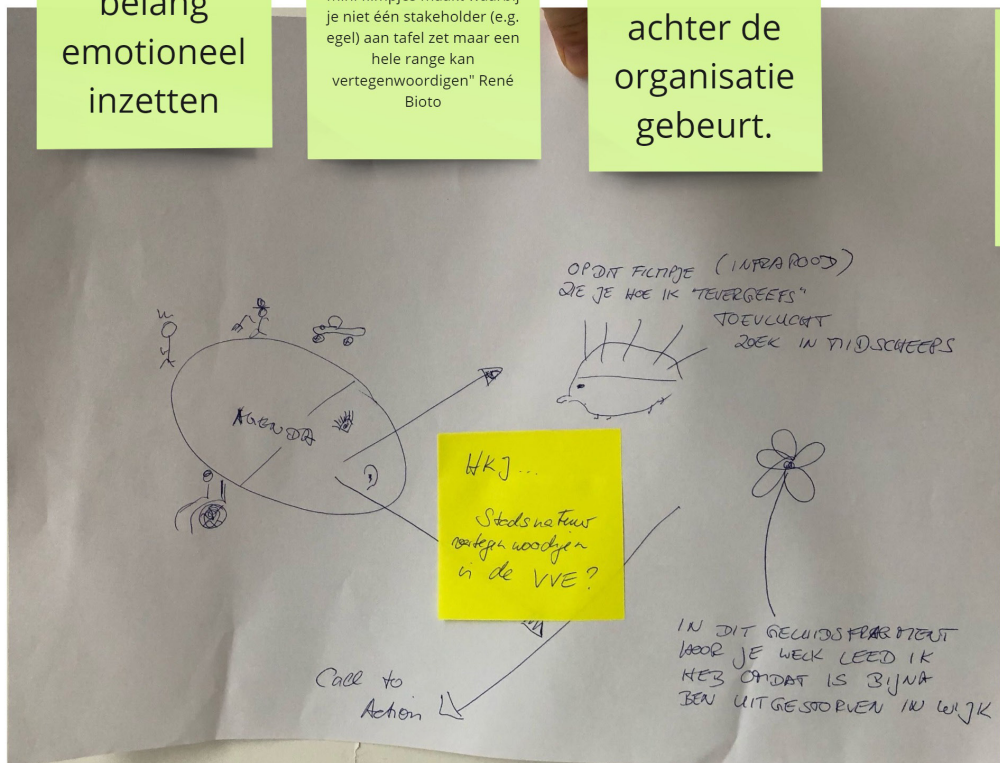 belang
emotioneel
inzetten
je niet één stakeholder (e.g.
egel) aan tafel zet maar een
hele range kan
vertegenwoordigen" René
Bioto
achter de
organisatie
gebeurt.
OP DIT FILMPJE (INFRAROOD)
ZIE JE HOE IK "TEVERGEEFS"
TOEVLUCHT
ZOEK IN MIDSCHEEPS
AGENDA
HKJ...
Stadsnatuur
vertegenwoordigen
in de VVE?
IN DIT GELUIDSFRAGMENT
HOOR JE WELK LEED IK
HEB OMDAT IS BIJNA
BEN UITGESTORVEN IN WIJK
Call to
Action